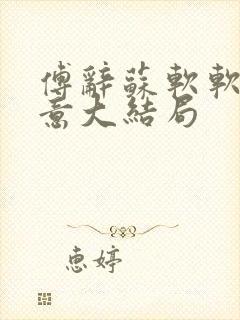 傅辭蘇軟軟
意大結局
惠婷